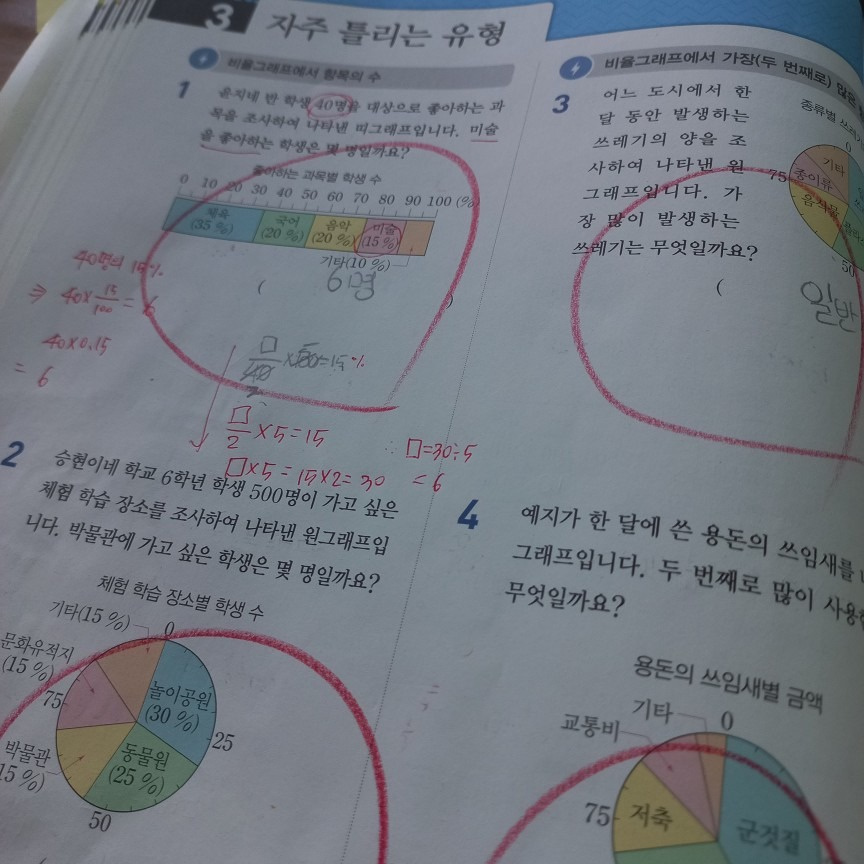 3 자주 틀리는 유형
비율그래프에서 항목의 수
1 윤지네 반 학생 40명을 대상으로 좋아하는 과
목을 조사하여 나타낸 띠그래프입니다. 미술
을 좋아하는 학생은 몇 명일까요?
좋아하는 과목별 학생 수
0 10 20 30 40 50 60 70 80 90 100 (%)
체육 국어 음악 미술
(35 %) (20 %) (20 %) (15 %)
기타(10 %)
( 6명 )
40명의 15%
⇒ 40×15/100=6
40×0.15
= 6
□/2 ×5=15
□×5=15×2=30
□=30÷5
=6
2 승현이네 학교 6학년 학생 500명이 가고 싶은
체험 학습 장소를 조사하여 나타낸 원그래프입
니다. 박물관에 가고 싶은 학생은 몇 명일까요?
체험 학습 장소별 학생 수
기타(15 %) 0
문화유적지
(15 %)
놀이공원
(30 %)
75
25
박물관
15 %)
동물원
(25 %)
50
비율그래프에서 가장(두 번째로) 많은
3 어느 도시에서 한
달 동안 발생하는
쓰레기의 양을 조
사하여 나타낸 원
그래프입니다. 가
장 많이 발생하는
쓰레기는 무엇일까요?
종류별 쓰레기
0
기타
75
종이류
음식물
50
( 일반
4 예지가 한 달에 쓴 용돈의 쓰임새를
그래프입니다. 두 번째로 많이 사용한
무엇일까요?
용돈의 쓰임새별 금액
기타 0
교통비
75 저축
군것질